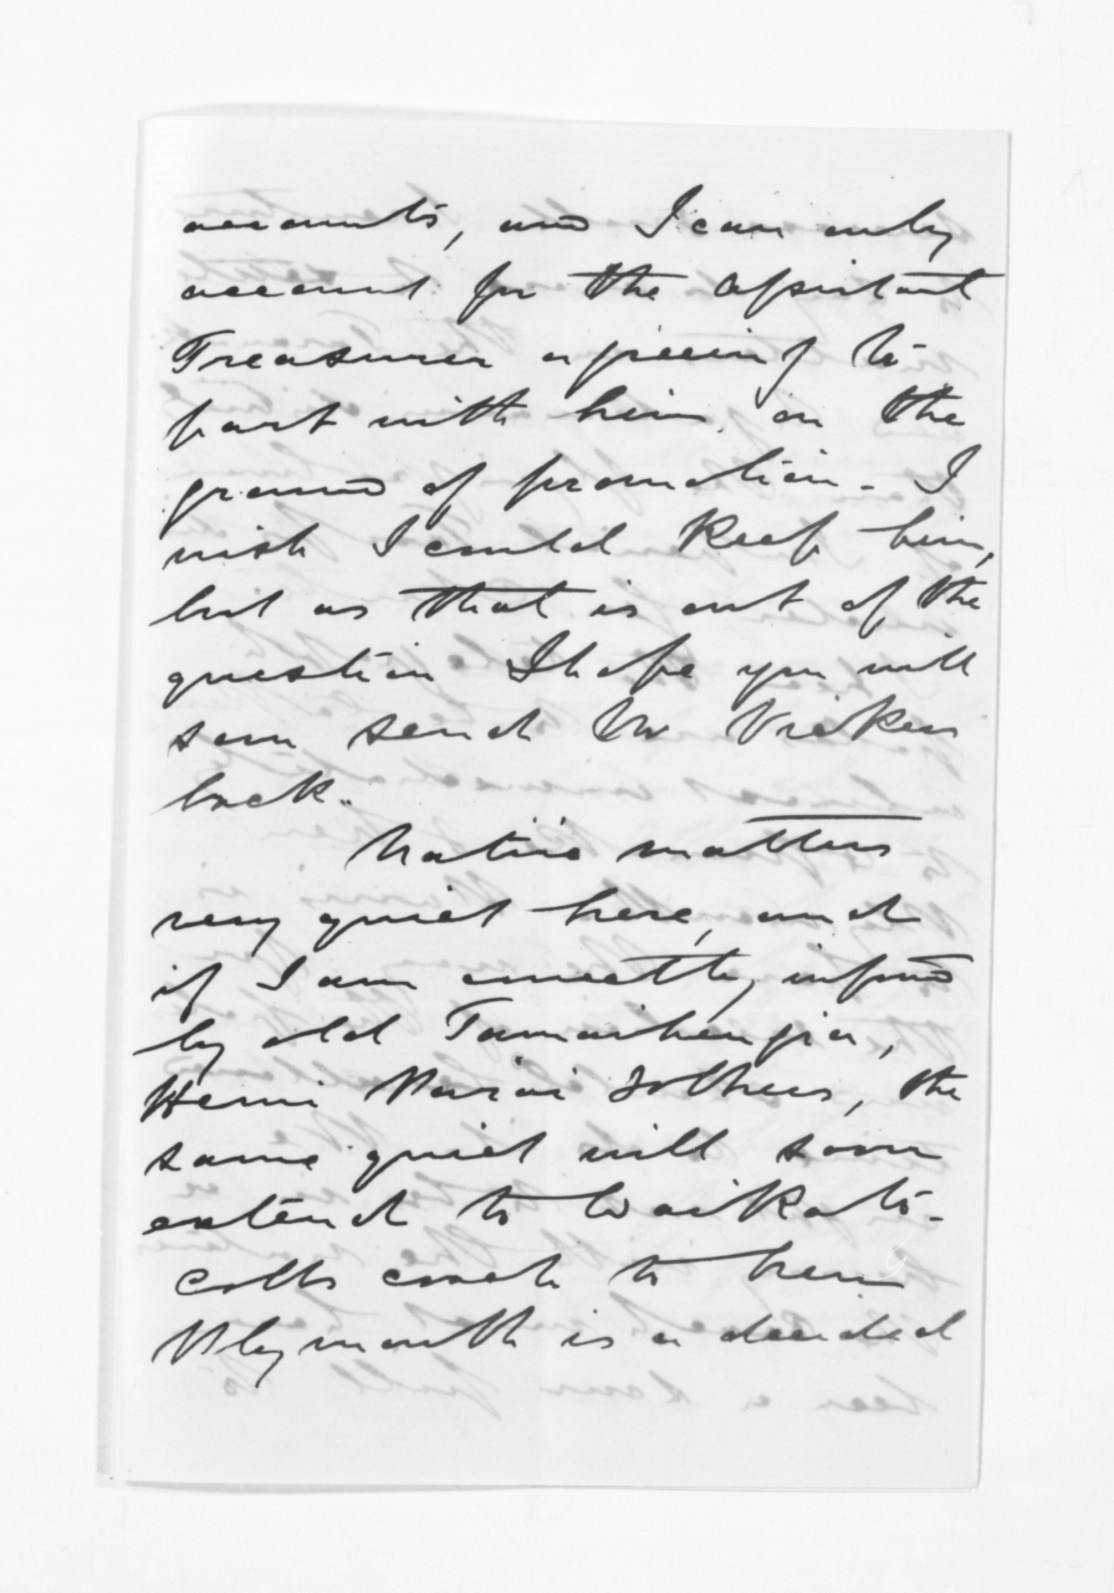 accounts, and I can only
account for the Assistant
Treasurer agreeing to
part with him, on the
ground of promotion - I
wish I could keep him,
but as that is out of the
question I hope you will
soon send Mr Vickers
back.
Native matters
very quiet here, and
if I am correctly informd
by old Tamaihengia,
Hemi Parai & others, the
same quiet will soon
extend to Waikato -
Cobbs coach to New
Plymouth is a decided